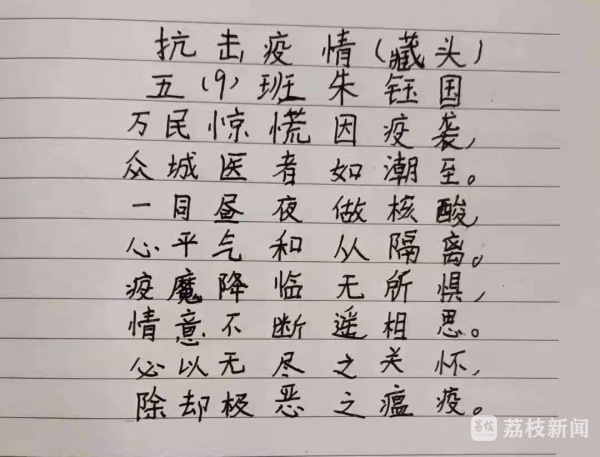 抗击疫情(藏头)
五(9)班朱钰国
万民惊慌因疫袭,
众城医者如潮至。
一同昼夜做核酸,
心平气和从隔离。
疫魔降临无所惧,
情意不断遥相思。
必以无尽之关怀,
除却极恶之瘟疫。
荔枝 荔枝新闻